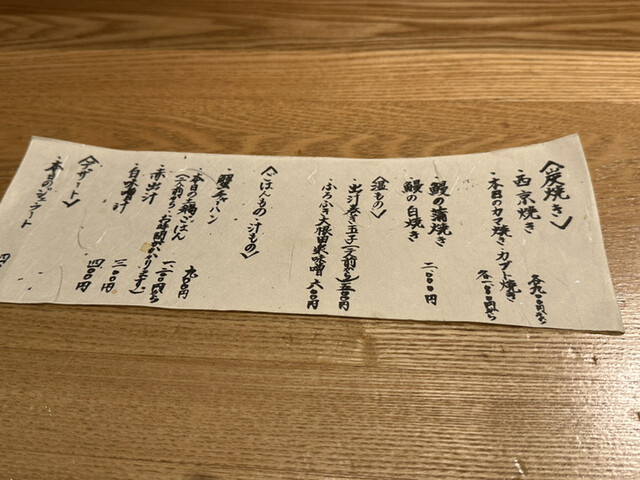 〈炭焼き〉
・西京焼き 各九〇〇円から
・本日のカマ焼き・カブト焼き 各一一〇〇円から
・鰻の蒲焼き
鰻の白焼き 二八〇〇円
〈温もの〉
・出汁巻き玉子(一人前から) 五〇〇円
・ふろふき大根田楽味噌 六〇〇円
〈ごはんもの・汁もの〉
蟹チャーハン 九〇〇円
・本日の土鍋ごはん 一二〇〇円から
(二人前から・お時間かかります)
・赤出汁 三〇〇円
・白味噌汁 四〇〇円
〈デザート〉
・本日のジェラート